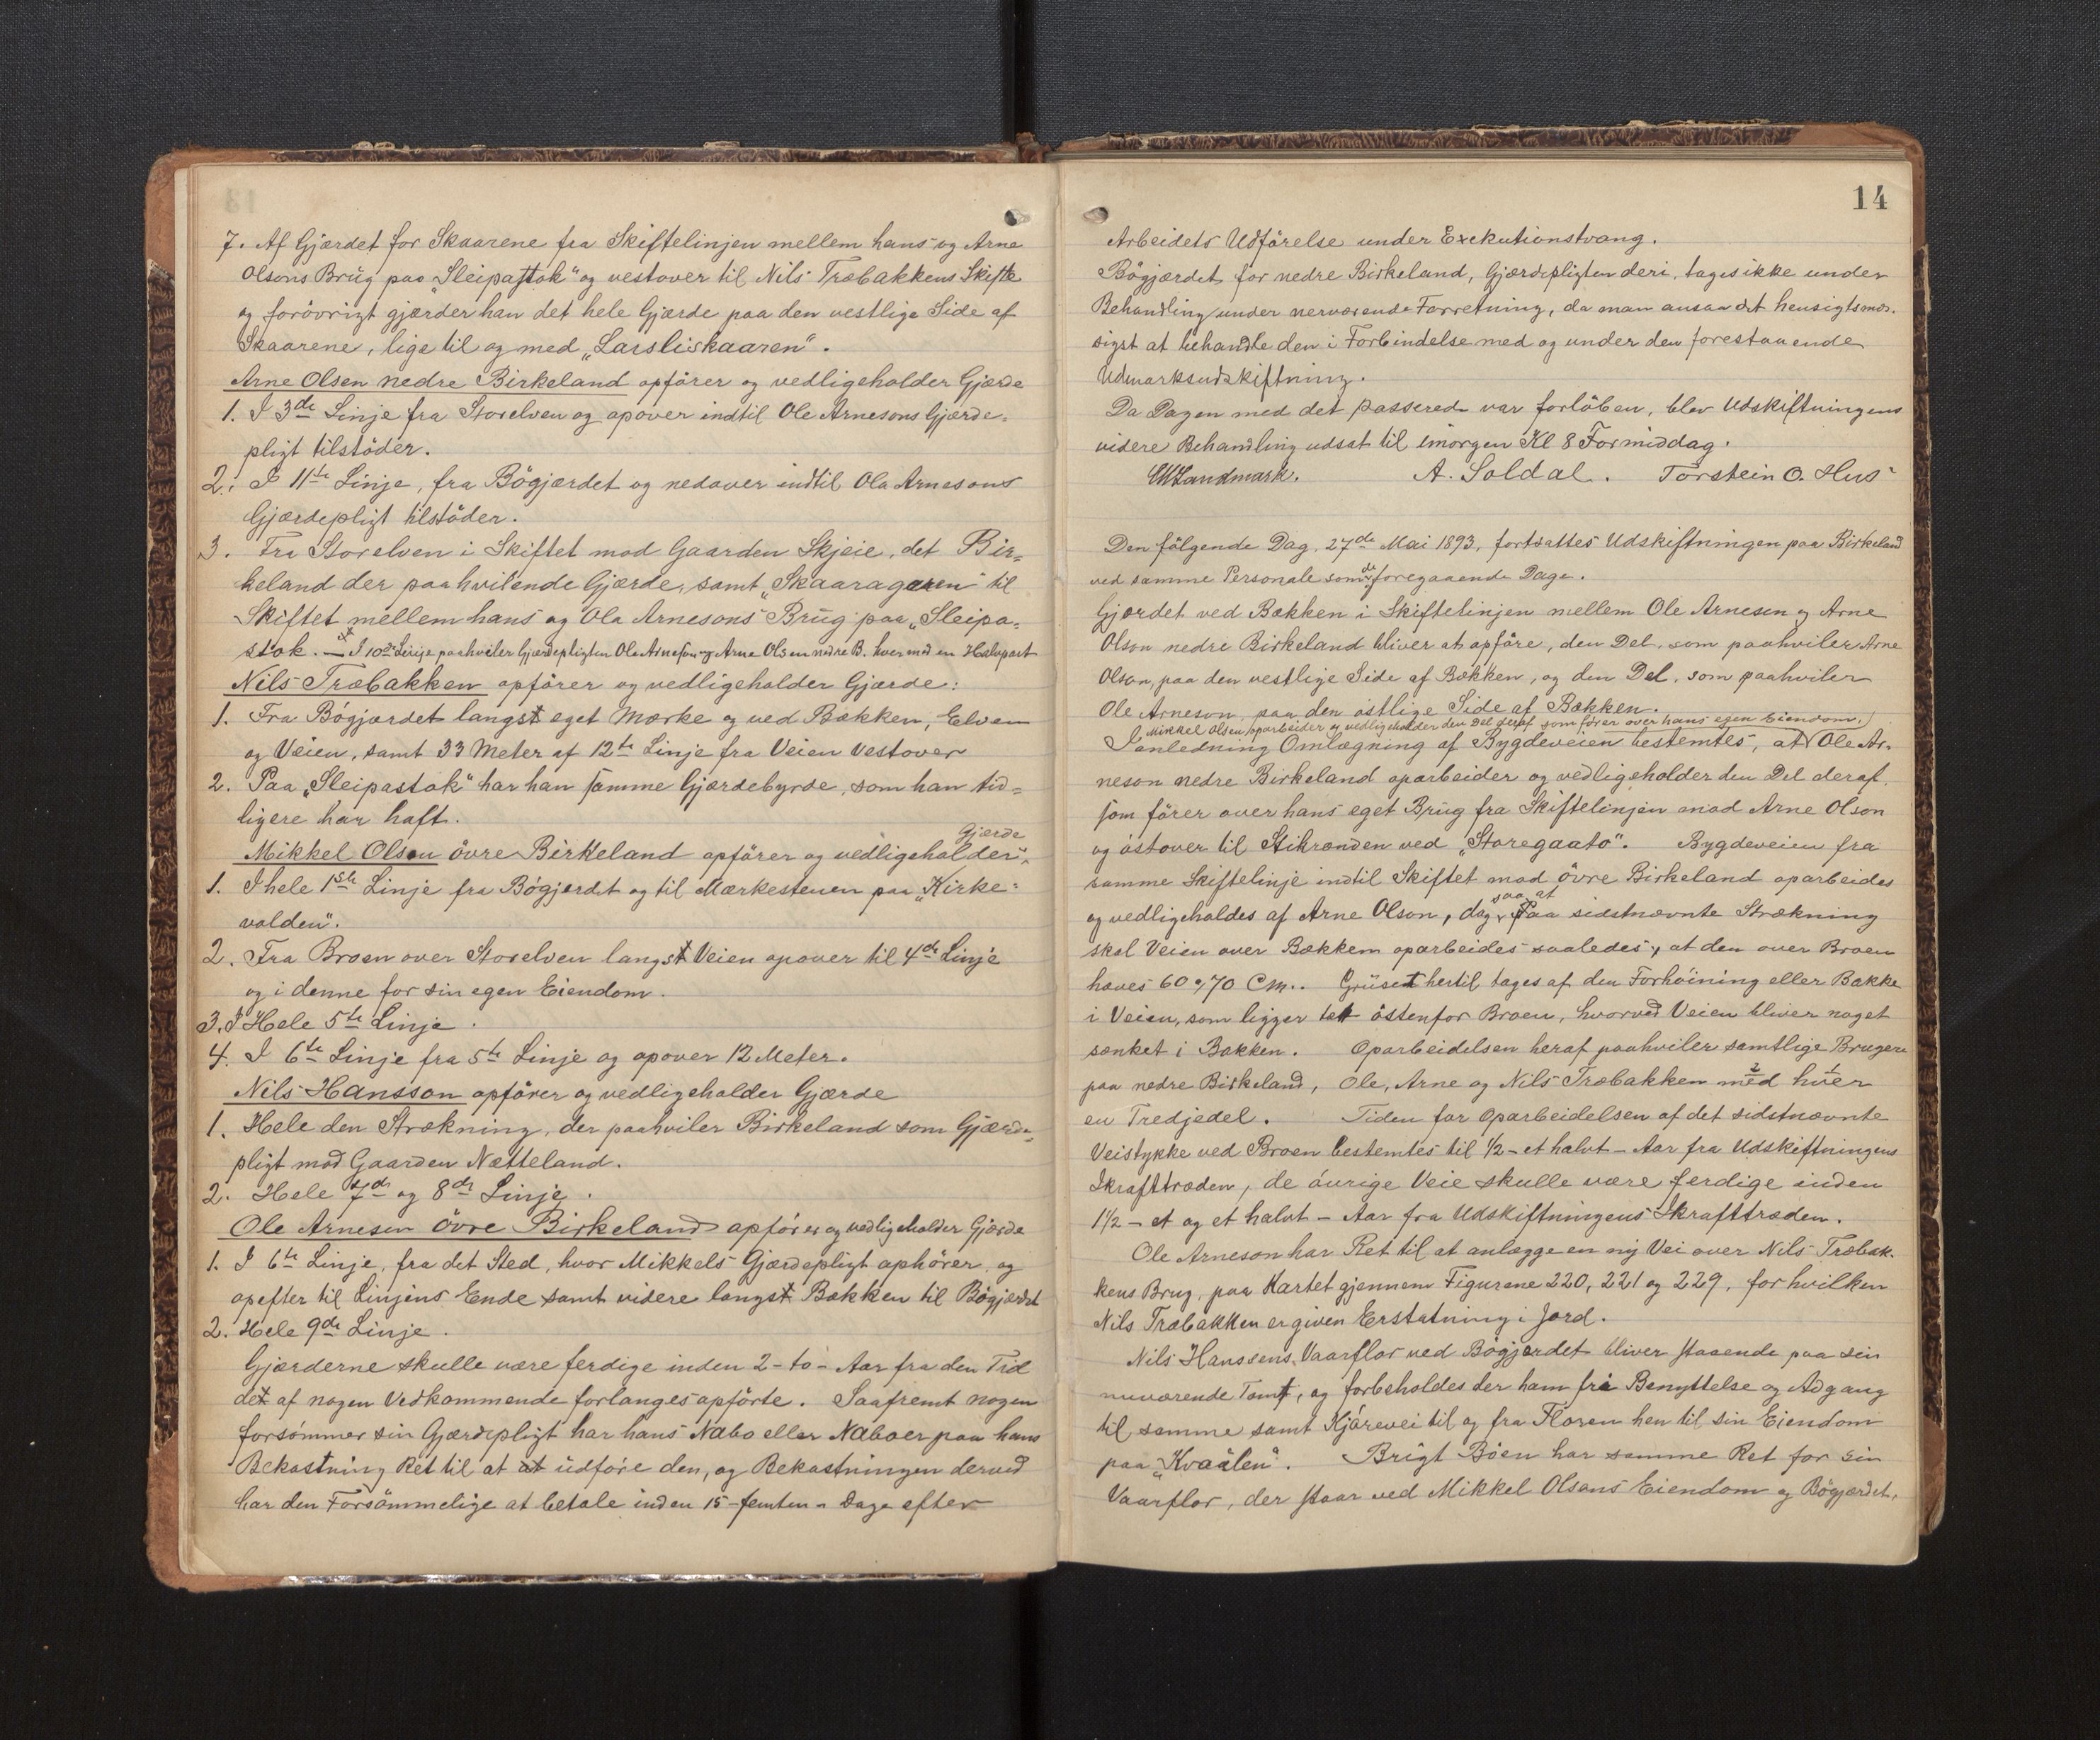 7. Af Gjærdet for Skaarene fra Skiftelinjen mellem hans og Arne
Olsons Brug paa „Sleipastok“ og vestover til Nils Træbakkens Skifte
og forövrigt gjærder han det hele Gjærde paa den vestlige Side af
Skaarene, lige til og med „Larsliskaaren“.
Arne Olsen nedre Birkeland opförer og vedligeholder Gjærde
1. I 3de Linje fra Storelven og opover indtil Ole Arnesons Gjærde=
pligt tilstöder.
2. I 11te Linje, fra Bögjærdet og nedover indtil Ola Arnesons
Gjærdepligt tilstöder.
3. Fra Storelven i Skiftet mod Gaarden Skjeie, det Bir=
keland der paahvilende Gjærde, samt „Skaaragaren“ til
Skiftet mellem hans og Ola Arnesons Brug paa „Sleipa=
stok. — I 10de Linje paahviler Gjærdepligten Ole Arneson og Arne Olsen nedre B. hver med en Halvpart
Nils Træbakken opförer og vedligeholder Gjærde:
1. Fra Bögjærdet langst eget Mærke og ved Bækken, Elven
og Veien, samt 33 Meter af 12te Linje fra Veien vestover
2. Paa „Sleipastok“ har han samme Gjærdebyrde, som han tid=
ligere har haft.
Gjærde
Mikkel Olsen övre Birkeland opförer og vedligeholder
1. I hele 1ste Linje fra Bögjærdet og til Mærkestenen paa „Kirke=
volden“.
2. Fra Broen over Storelven langst Veien opover til 4de Linje
og i denne for sin egen Eiendom.
3. I Hele 5te Linje.
4. I 6te Linje fra 5te Linje og opover 12 Meter.
Nils Hansson opförer og vedligeholder Gjærde
1. Hele den Strækning, der paahviler Birkeland som Gjærde=
pligt mod Gaarden Nætteland.
2. Hele 7de og 8de Linje.
Ole Arnesen övre Birkeland opförer og vedligeholder Gjærde
1. I 6te Linje, fra det Sted, hvor Mikkels Gjærdepligt ophörer, og
opefter til Linjens Ende samt videre langst Bækken til Bögjærdet
2. Hele 9de Linje.
Gjærderne skulle være ferdige inden 2 - to - Aar fra den Tid
det af nogen Vedkommende forlanges opförte. Saafremt nogen
forsömmer sin Gjærdepligt har hans Nabo eller Naboer paa hans
Bekostning Ret til at at udföre den, og Bekostningen derved
har den Forsömmelige at betale inden 15 - femten - Dage efter
14
Arbeidets Udförelse under Exekutionstvang.
Bögjærdet for nedre Birkeland, Gjærdepligten deri, tages ikke under
Behandling under nerværende Forretning, da man ansaa det hensigtsmæs.
sigst at behandle den i Forbindelse med og under den forestaaende
Udmarksudskiftning.
Da Dagen med det passerede var forlöben, blev Udskiftningens
videre Behandling udsat til imorgen Kl 8 Formiddag.
Landmark. A. Soldal. Torstein O. Hus
Den fölgende Dag, 27de Mai 1893, fortsattes Udskiftningen paa Birkeland
ved samme Personale som de foregaaende Dage.
Gjærdet ved Bækken i Skiftelinjen mellem Ole Arnesen og Arne
Olson nedre Birkeland bliver at opföre, den Del, som paahviler Arne
Olson, paa den vestlige Side af Bækken, og den Del, som paahviler
Ole Arneson, paa den östlige Side af Bækken.
Mikkel Olsen oparbeider og vedligeholder den Del deraf som förer over hans egen Eiendom,
I anledning Omlægning af Bygdeveien bestemtes, at Ole Ar.
neson nedre Birkeland oparbeider og vedligeholder den Del deraf
som förer over hans eget Brug fra Skiftelinjen mod Arne Olson
og östover til Stikrenden ved „Storegaato“. Bygdeveien fra
samme Skiftelinje indtil Skiftet mod övre Birkeland oparbeides
og vedligeholdes af Arne Olson, dog saa at paa sidstnævnte Strækning
skal Veien over Bækken oparbeides saaledes, at den over Broen
hæves 60 og 70 Cm.. Gruset hertil tages af den Forhöining eller Bakke
i Veien, som ligger tet östenfor Broen, hvorved Veien bliver noget
sænket i Bakken. Oparbeidelsen heraf paahviler samtlige Brugere
paa nedre Birkeland, Ole, Arne og Nils Træbakken med hver
en Tredjedel. Tiden for Oparbeidelsen af det sidstnævnte
Veistykke ved Broen bestemtes til ½ - et halvt - Aar fra Udskiftningens
Ikrafttræden, de övrige Veie skulle være ferdige inden
1½ - et og et halvt - Aar fra Udskiftningens Ikrafttræden.
Ole Arneson har Ret til at anlægge en ny Vei over Nils Træbak.
kens Brug, paa Kartet gjennem Figurene 220, 221 og 229, for hvilken
Nils Træbakken er given Erstatning i Jord.
Nils Hanssens Vaarflor ved Bögjærdet bliver staaende paa sin
nuværende Tomt, og forbeholdes der ham fri Benyttelse og Adgang
til samme samt Kjörevei til og fra Floren hen til sin Eiendom
paa „Kvaalen“. Brigt Böen har samme Ret for sin
Vaarflor, der staar ved Mikkel Olsons Eiendom og Bögjærdet.